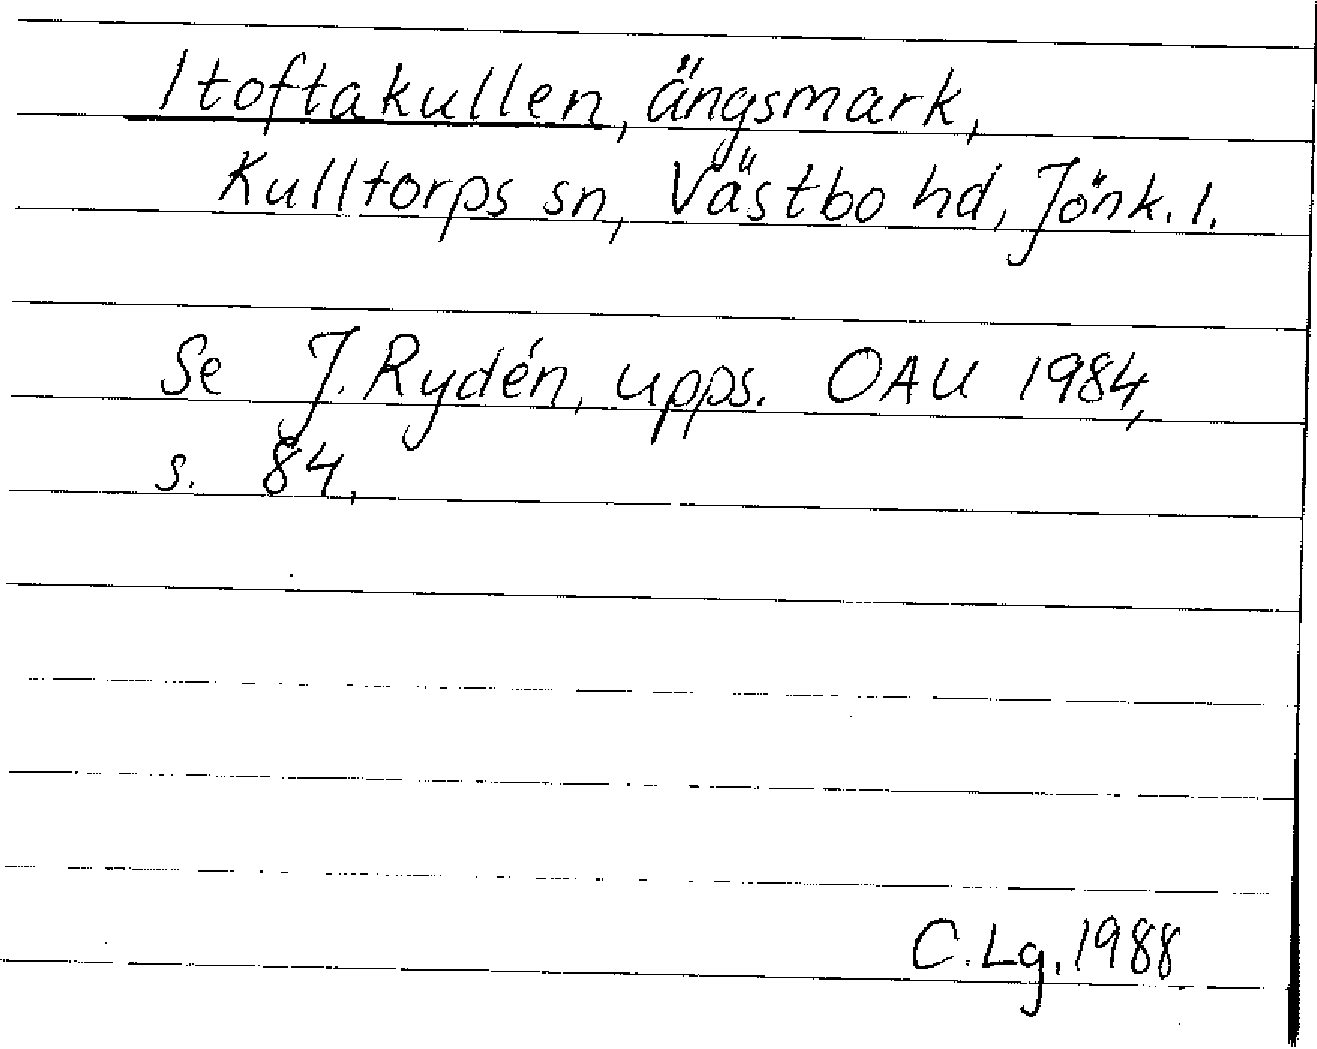 Itoftakullen, ängsmark,
Kulltorps sn, Västbo hd, Jönk. l.
Se J. Rydén, upps. OAU 1984,
s. 84.
C. Lg. 1988